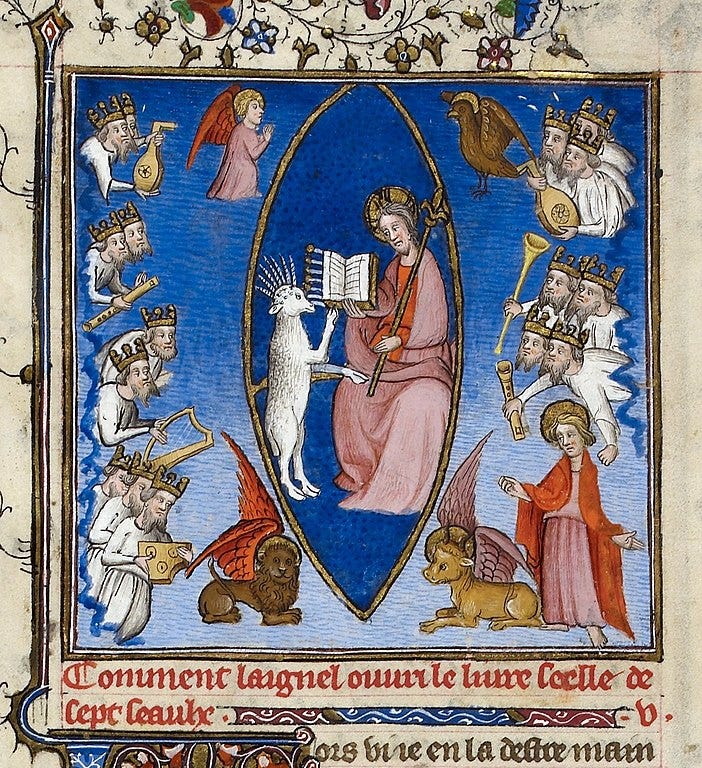 Comment laignel ouuri le liure seelle de
sept seaulx . - v .
lors vi ie en la destre main